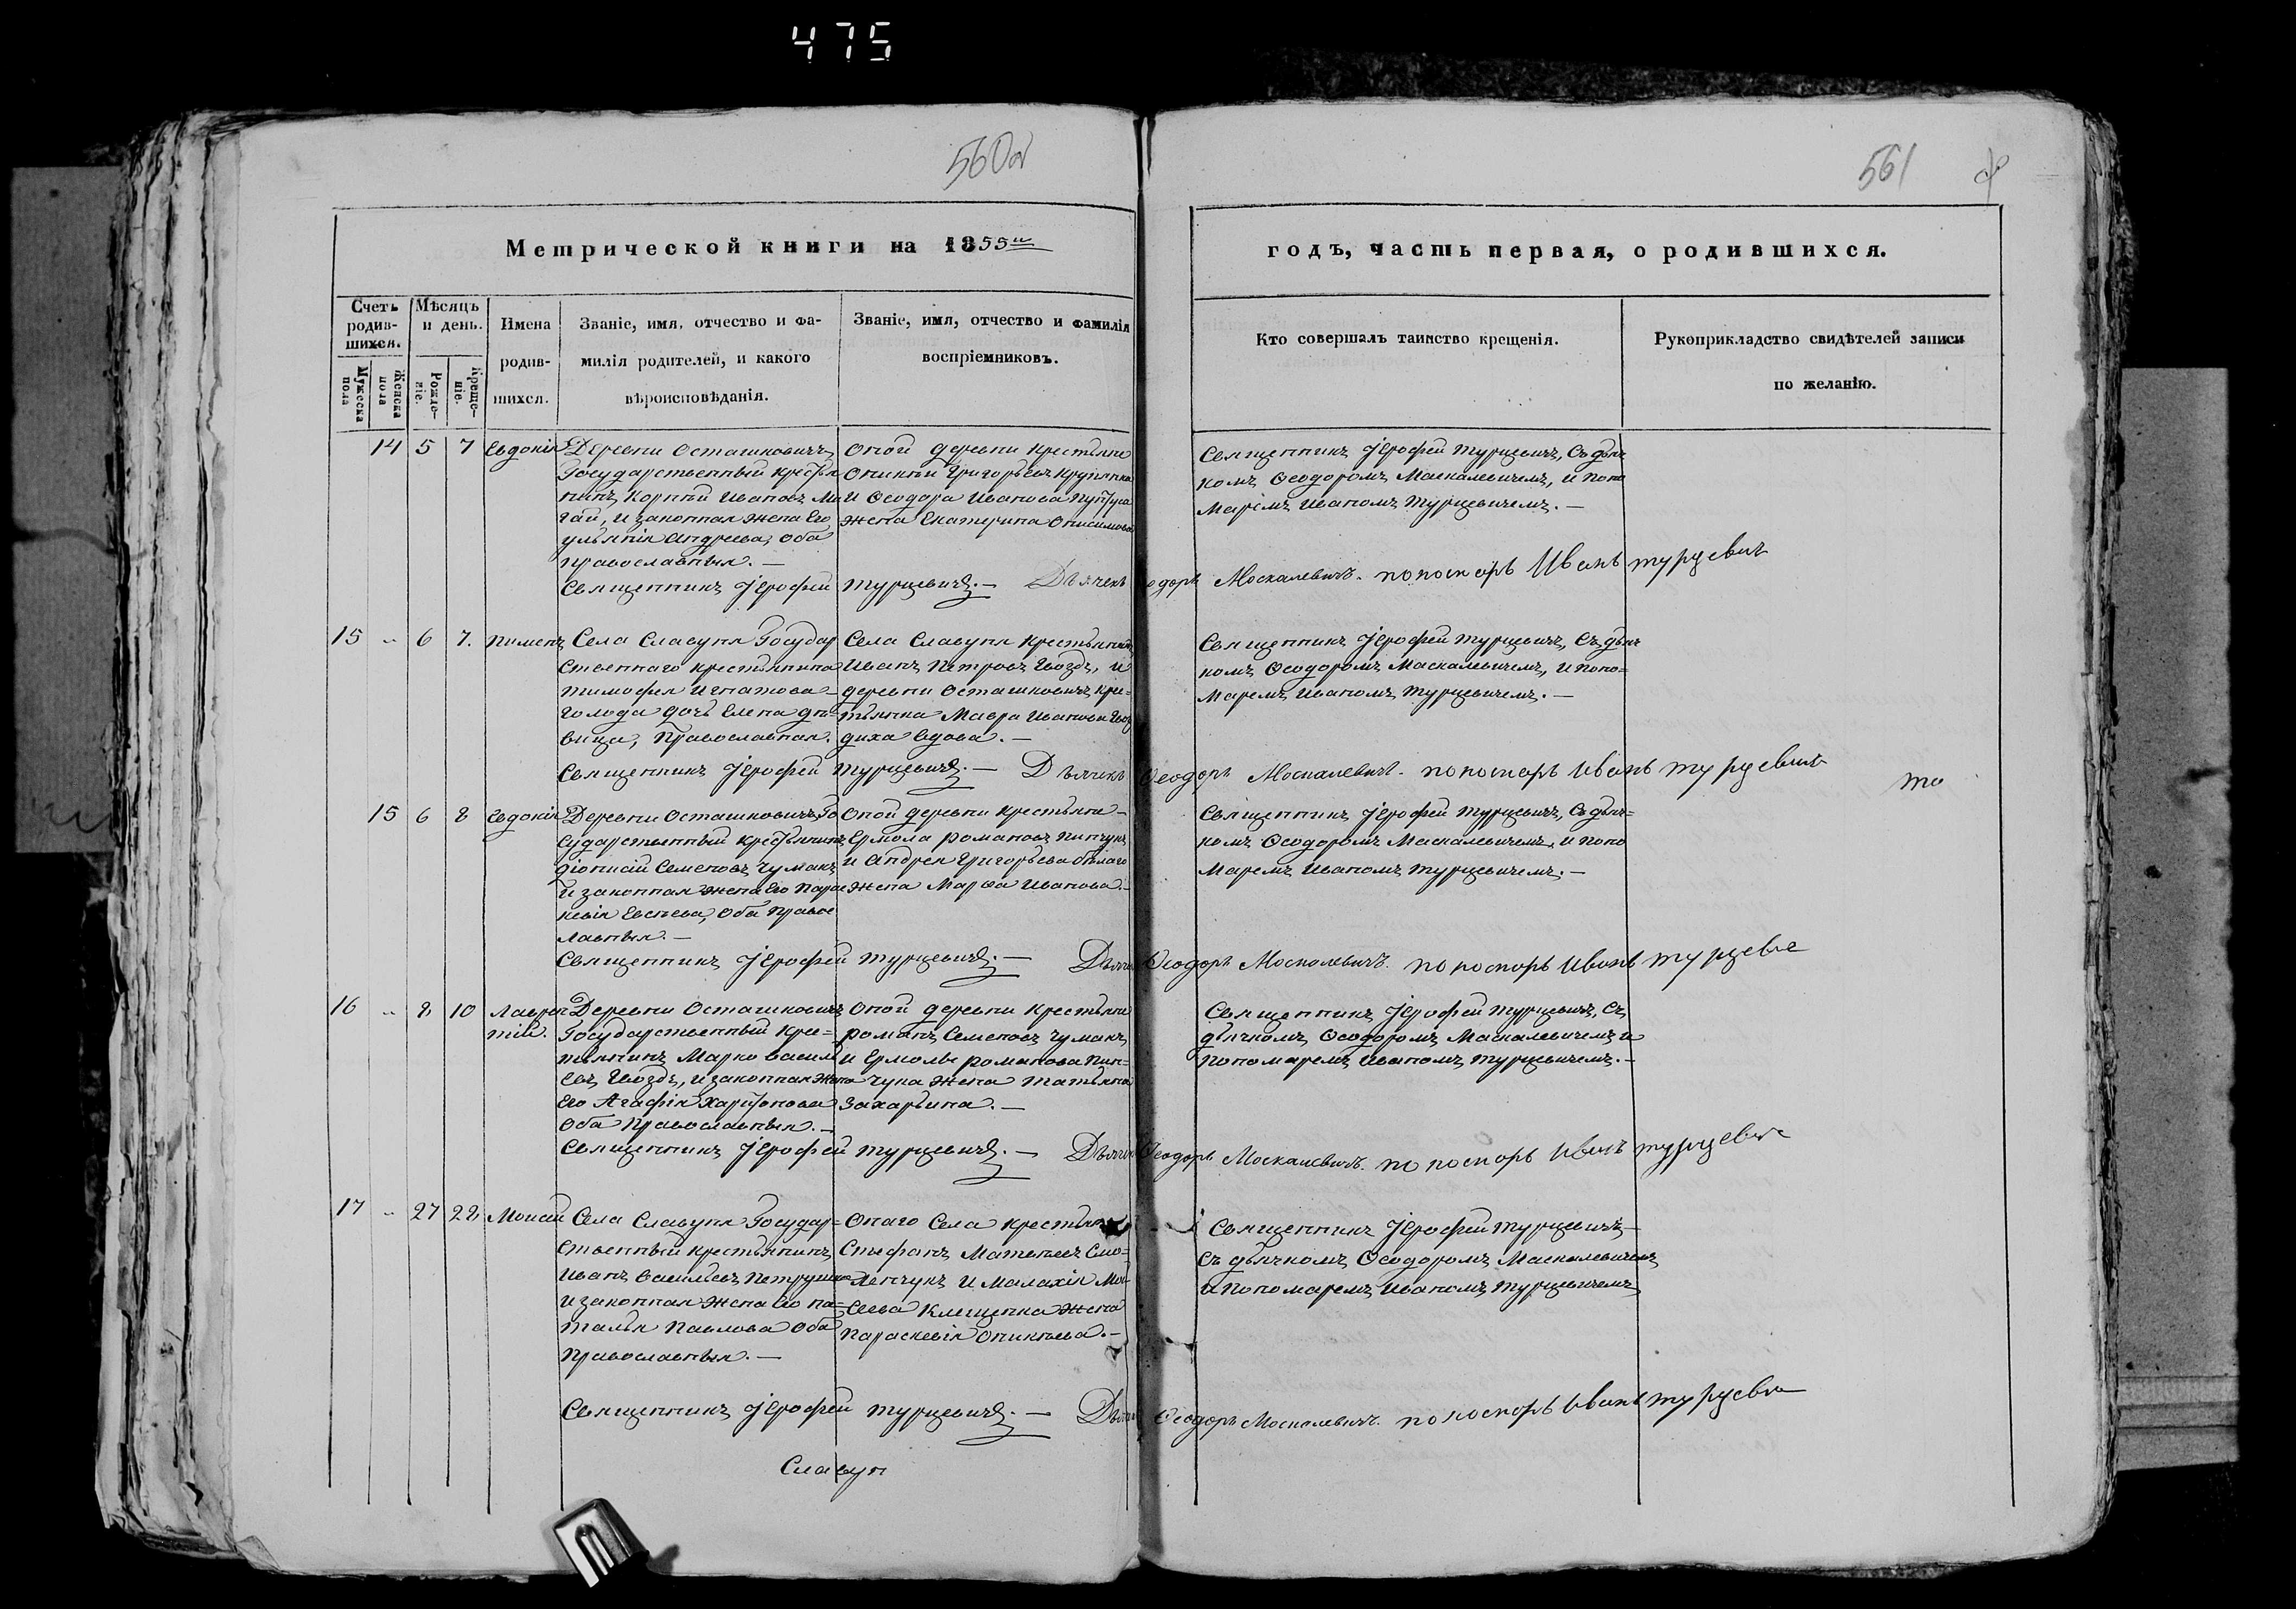 475
560об
561
Метрической книги на 1855й
годъ, часть первая, о родившихся.
Счетъ родив-шихся.
Мужеска пола
Женска пола
Мѣсяцъ и день.
Рожде-ніе.
Креще-ніе.
Имена
родив-
шихся.
Званіе, имя, отчество и фа-
милія родителей, и какого
вѣроисповѣданія.
Званіе, имя, отчество и фамилія
воспріемниковъ.
Кто совершалъ таинство крещенія.
Рукоприкладство свидѣтелей записи
по желанію.
14 5 7 Евдокія
Деревни Осташковичъ
Государственный кресть
нинъ, Корнѣй Ивановъ Ми
гай, и законная жена Его
ульянія Андреева, оба
православныя. —
оной деревни крестьяне
Оникѣй Григорьевъ
и Ѳеодора Иванова
жена Екатерина Онисимова
Священникъ Іерофей Турцевичъ, Съ дьяч
комъ Ѳеодоромъ Маскалевичемъ, и Поно
маремъ Иваномъ Турцевичемъ. —
Священникъ Іерофей Турцевичъ. — Дьячекъ Ѳеодоръ Москалевичъ. попоморь Иванъ турцевичъ
15 " 6 7. Пименъ
Села Славуня Государ
ственнаго крестьянина
Тимофея Игнатова
голода дочь Елена дѣ-
вица, Православная.
Села Славуня крестьянинъ
Иванъ Петровъ Гвоздь, и
деревни Осташковичъ кре=
стьянка Мавра Иванова Гвоз
диха вдова. —
Священникъ Іерофей Турцевичъ, Съ дьяч
комъ Ѳеодоромъ Маскалевичемъ, и Поно=
маремъ Иваномъ Турцевичемъ. —
Священникъ Іерофей Турцевичъ. — Дьячекъ Ѳеодоръ Москалевичъ. попоморь Иванъ турцевичъ
то
15 6 8 Евдокія
Деревни Осташковичъ Го
сударственный крестьянинъ
Діонисій Семеновъ Чумакъ
и законная жена Его Пара
скевія Евсѣева, оба Правос
лавныя. —
оной деревни крестьяне
Ермола Романовъ Пинчукъ
и Андрея Григорьева бѣлаго
жена Марѳа Иванова. —
Священникъ Іерофей Турцевичъ, Съ дьяч=
комъ Ѳеодоромъ Маскалевичемъ, и Поно
маремъ Иваномъ Турцевичемъ. —
Священникъ Іерофей Турцевичъ. — Дьячекъ Ѳеодоръ Москалевичъ. попоморь Иванъ турцевиче
16 " 8 10 Лаврен
тій.
Деревни Осташковичъ
Государственный крес=
тьянинъ Марко Василь
евъ Гвоздь, и законная жена
Его Агафія Харитонова
оба Православныя. —
оной деревни крестьяне
Романъ Семеновъ Чумакъ,
и Ермолы Романова Пин=
чука жена Татьяна
Захарьина. —
Священникъ Іерофей Турцевичъ, Съ
дьячкомъ Ѳеодоромъ Маскалевичемъ и
Пономаремъ Иваномъ Турцевичемъ. —
Священникъ Іерофей Турцевичъ. — Дьячекъ Ѳеодоръ Москалевичъ. попоморь Иванъ турцевиче
17 " 27 28 Моисей
Села Славуня Государ=
ственный крестьянинъ
Иванъ Васильевъ Петруша
и законная жена Его На=
талья Павлова оба
Православныя. —
Онаго Села крестьяне
Стефанъ Матвѣевъ Смо=
ленчукъ и Малахія Мои
сеева Клещенка жена
Параскевія Оникѣева. —
Священникъ Іерофей Турцевичъ
Съ дьячкомъ Ѳеодоромъ Маскалевичемъ
и Пономаремъ Иваномъ Турцевичемъ
Священникъ Іерофей Турцевичъ. — Дьячекъ Ѳеодоръ Москалевичъ. попоморь Иванъ турцевиче
Славун